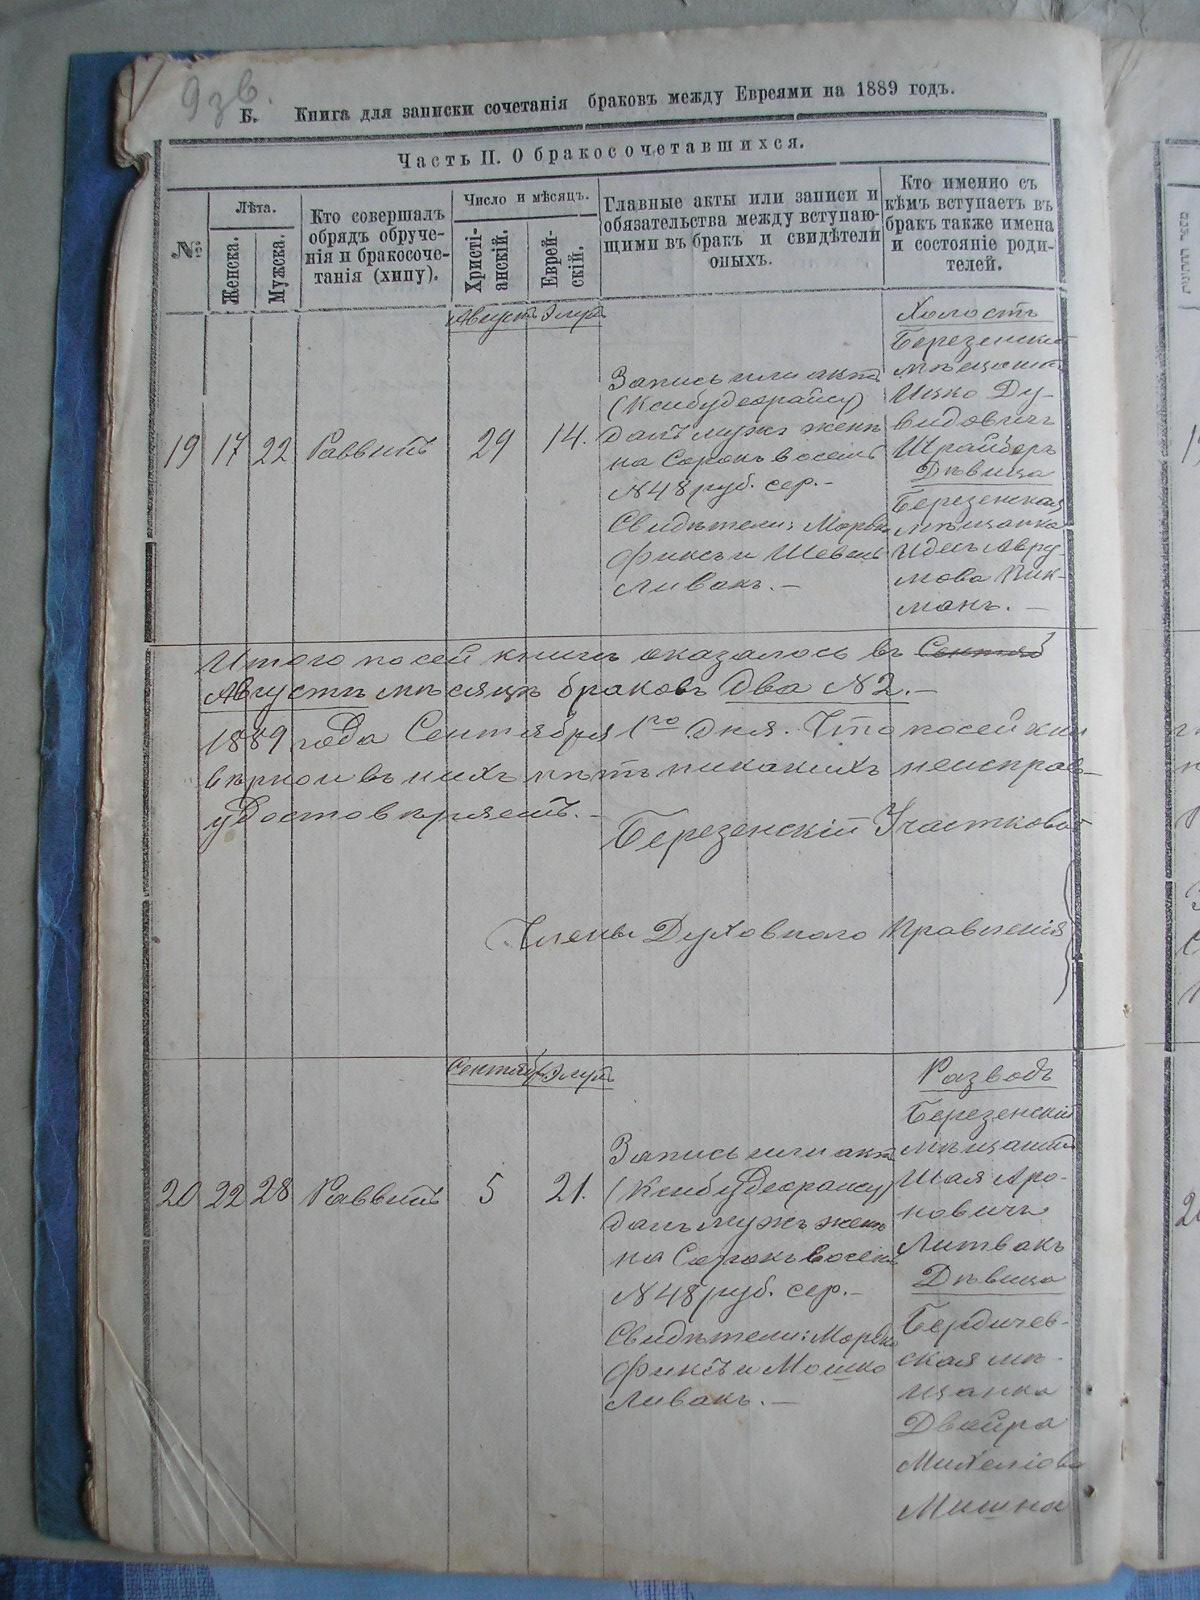 9 зв.
Б. Книга для записки сочетанія браковъ между Евреями на 1889 годъ.
Часть II. О бракосочетавшихся.
№
Лѣта.
Женска.
Мужска.
Кто совершалъ
обрядъ обруче-
нія и бракосоче-
танія (хипу).
Число и мѣсяцъ.
Христі-
анскій.
Еврей-
скій.
Главные акты или записи и
обязательства между вступаю-
щими въ бракъ и свидѣтели
оныхъ.
Кто именно съ
кѣмъ вступаетъ въ
бракъ также имена
и состояніе роди-
телей.
Августъ Элулъ
19 17 22 Раввинъ 29 14.
Запись или актъ
(Ксибудеорайсу)
далъ мужъ женѣ
на Сорокъ восемь
№ 48 руб. сер.-
Свидѣтели: Мордко
Фиксъ и Шевель
Ливакъ.-
Холостъ
Березинскій
мѣщанинъ
Ицко Ду-
видовичъ
Шрайберъ
Дѣвица
Березенская
мѣщанка
Идесъ Авру-
мова Пик-
манъ.-
Итого по сей книгѣ оказалось въ Сентяб
Августѣ мѣсяцѣ браковъ два № 2.-
1889 года Сентября 1го дня. Что по сей кни
вѣрно и въ нихъ нѣтъ никакихъ неисправ-
удостовѣряетъ.-
Березенскій Участковой
Члены Духовнаго Правленія
Сентябрь Элулъ
20 22 28 Раввинъ 5 21.
Запись или актъ
(Ксибудеорайсу)
далъ мужъ женѣ
на Сорокъ восемь
№ 48 руб. сер.-
Свидѣтели: Мордко
Фиксъ и Мошко
Ливакъ.-
Разводъ
Березенскій
мѣщанинъ
Шая Аро-
новичъ
Литвакъ
Дѣвица
Бердичев-
ская мѣ-
щанка
Двойра
Михеліова
Мишна